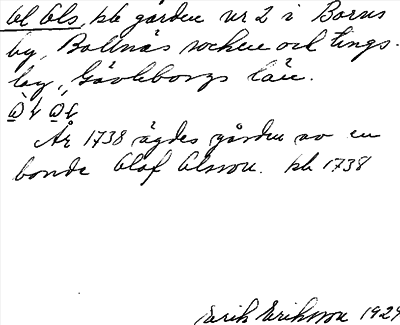 Ol Ols, på gården nr 2 i Borns
by, Bollnäs socken och tings-
lag, Gävleborgs län.
År 1738 ägdes gården av en
bonde Olof Olsson. på 1738
Erik Eriksson 1929